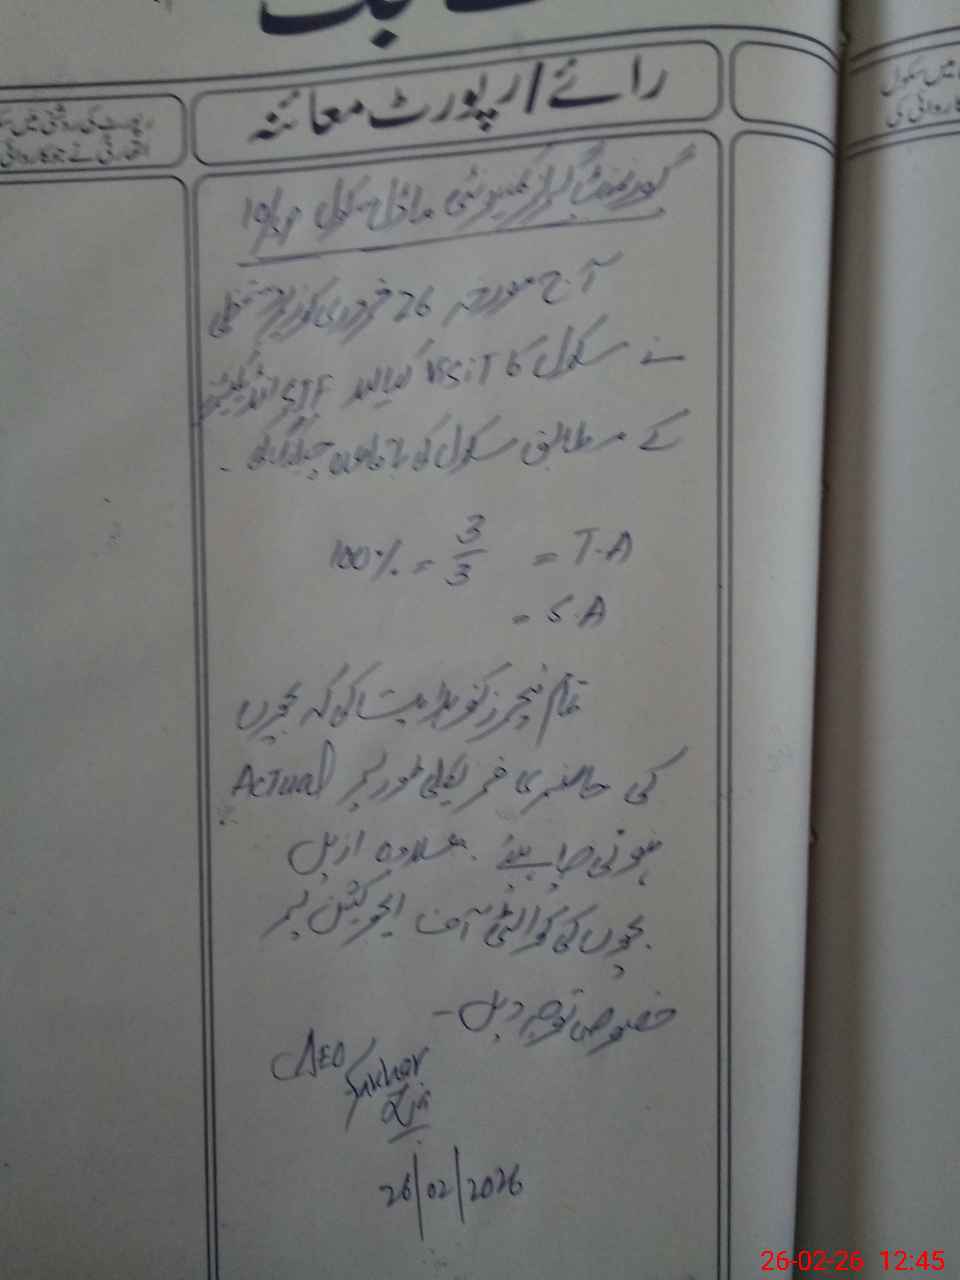 رائے/رپورٹ معائنہ
رپورٹ کی روشنی میں
میں سکول
کارروائی کی
گورنمنٹ گرلز کمیونٹی ماڈل سکول
آج مورخہ 26 فروری کو
نے سکول کا VISIT کیا اور STF
کے مطابق سکول کو
100% = 3/3 = T.A
= S.A
تمام ٹیچرز کو ہدایت کی کہ بچوں
کی حاضری فزیکلی طور پر Actual
ہونی چاہیئے۔ علاوہ ازیں
بچوں کی کوالٹی آف ایجوکیشن پر
خصوصی توجہ دیں۔
AEO
Zia
26/02/2026
26-02-26 12:45